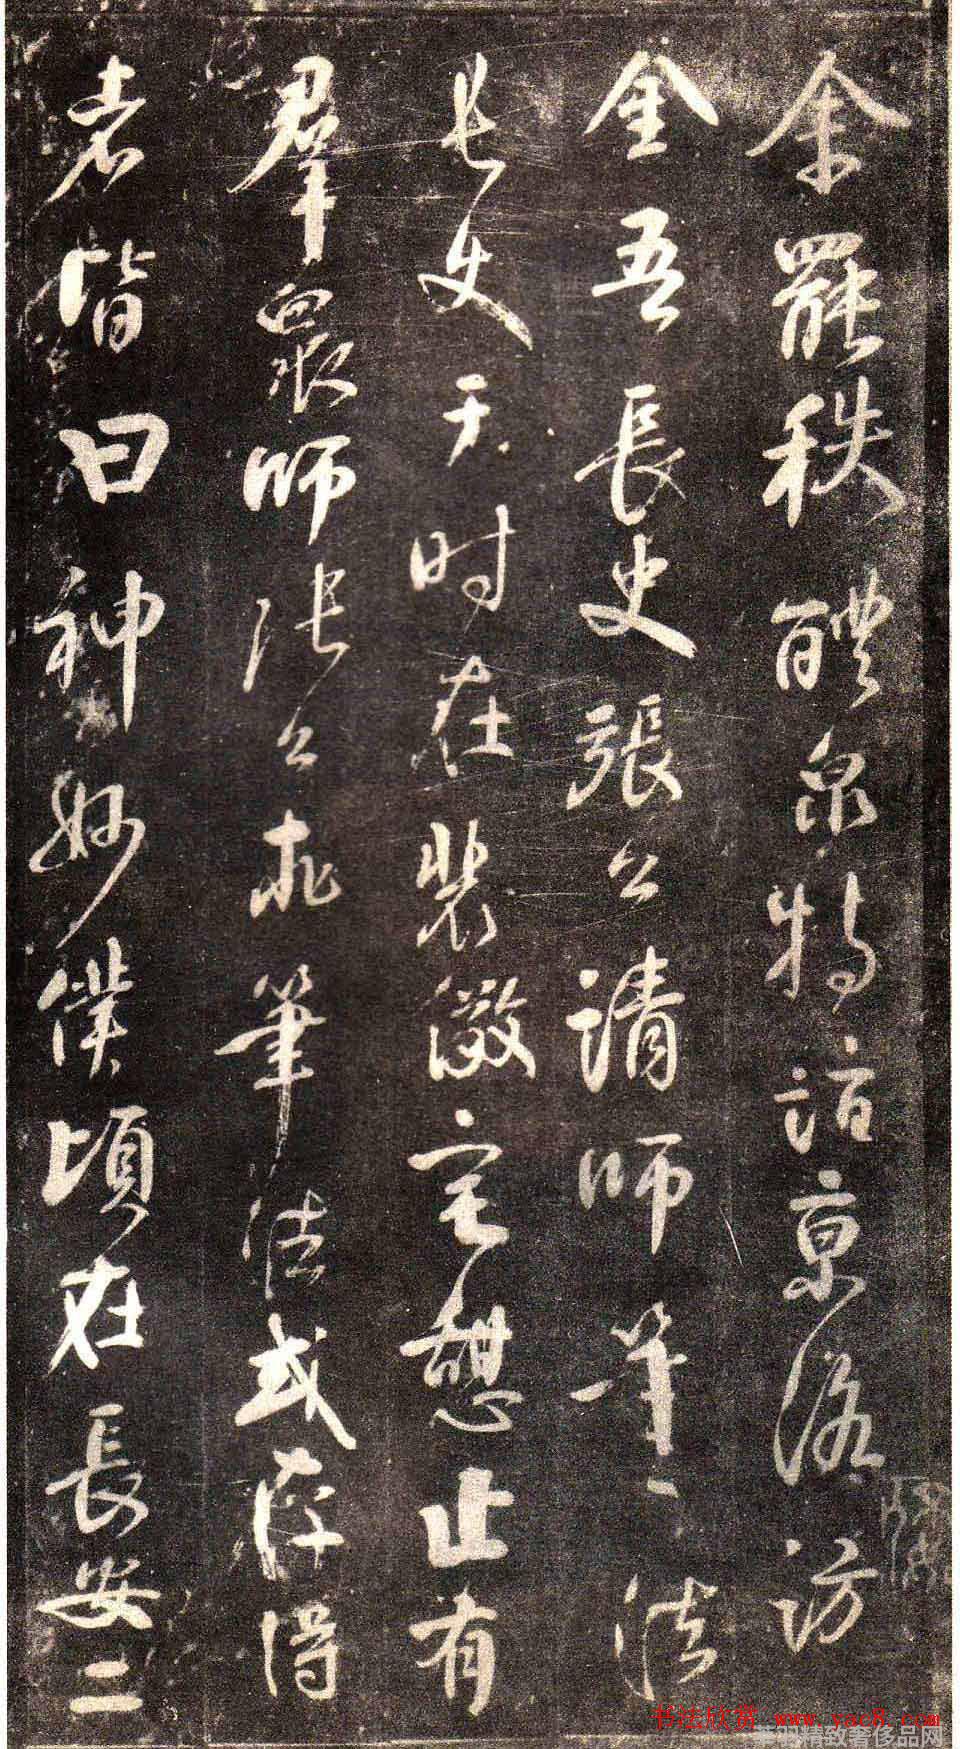 余罷秩醴泉特詣京洛訪
金吾長史張公請師筆法
長史於時在裴儆宅憩止有
羣眾師張公求筆法或存得
者皆曰神妙僕頃在長安二
书法欣赏 www.yac8.com
精致奢侈品网